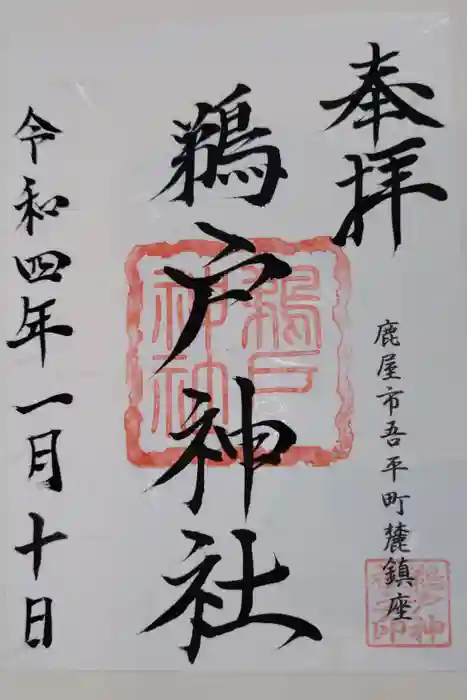 奉拝
鹿屋市吾平町麓鎮座
鵜戸神社
令和四年一月十日
鵜戸
神社